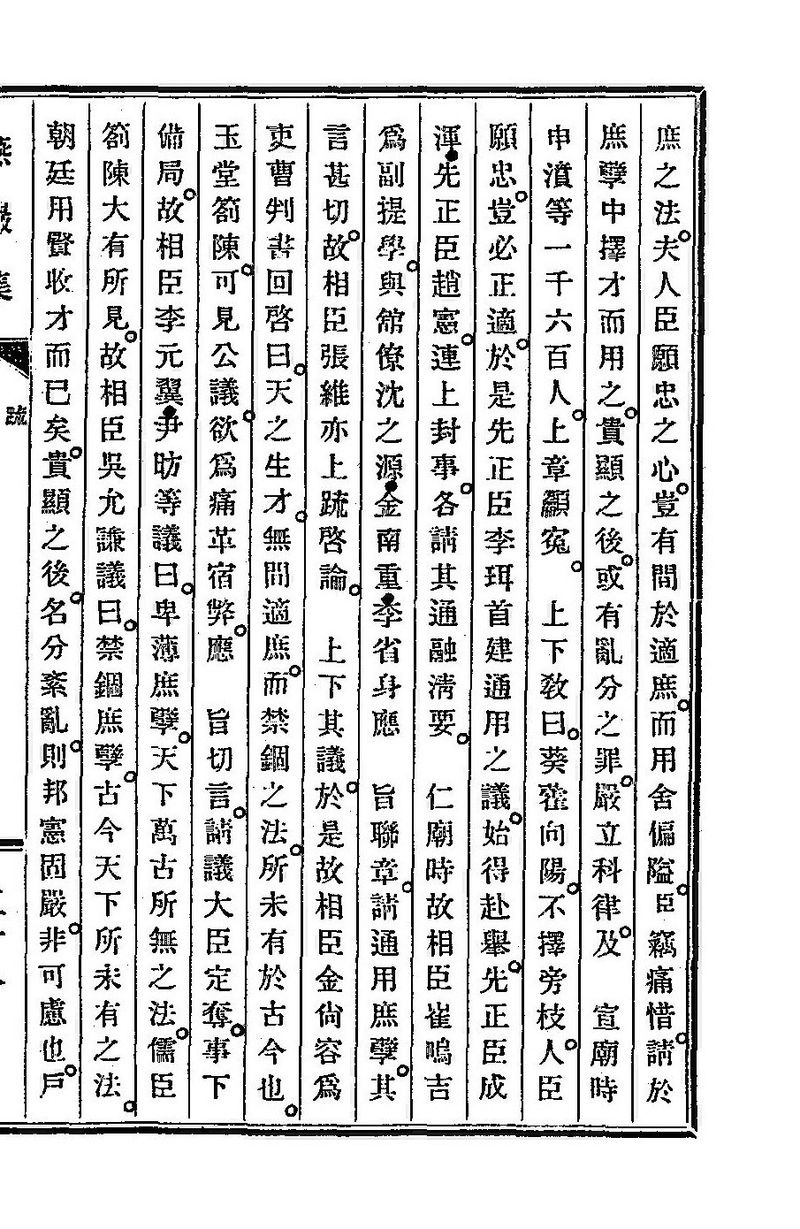 庶之法夫人臣願忠之心豈有間於適庶而用舍偏隘臣竊痛惜請於
庶孽中擇才而用之貴顯之後或有亂分之罪嚴立科律及　宣廟時
申濆等一千六百人上章籲寃　上下敎曰葵藿向陽不擇旁枝人臣
願忠豈必正適於是先正臣李珥首建通用之議始得赴擧先正臣成
渾先正臣趙憲連上封事各請其通融淸要　仁廟時故相臣崔鳴吉
爲副提學與館僚沈之源金南重李省身應　旨聯章請通用庶孽其
言甚切故相臣張維亦上疏啓論　上下其議於是故相臣金尙容爲
吏曹判書回啓曰天之生才無間適庶而禁錮之法所未有於古今也
玉堂箚陳可見公議欲爲痛革宿弊應　旨切言請議大臣定奪事下
備局故相臣李元翼尹昉等議曰卑薄庶孽天下萬古所無之法儒臣
箚陳大有所見故相臣吳允謙議曰禁錮庶孽古今天下所未有之法
朝廷用賢收才而已矣貴顯之後名分紊亂則邦憲固嚴非可慮也戶
疏